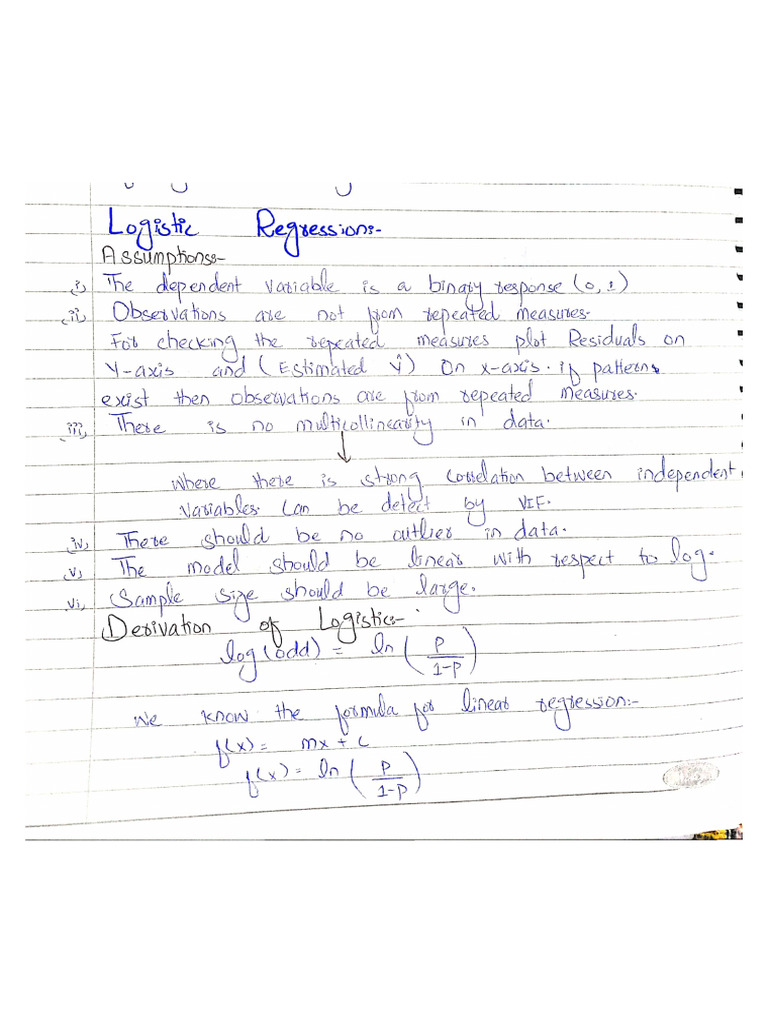 Logistic Regression:-
Assumptions:-
i, The dependent variable is a binary response (0, 1)
ii, Observations are not from repeated measures.
For checking the repeated measures plot Residuals on
Y-axis and (Estimated Ŷ) On x-axis. if patterns
exist then observations are from repeated measures.
iii, There is no multicollinearity in data.
↓
Where there is strong correlation between independent
variables. Can be detect by VIF.
iv, There should be no outlier in data.
v, The model should be linear with respect to log.
vi, Sample size should be large.
Derivation of Logistic:-
log(odd) = ln(P/1-P)
We know the formula for linear regression:-
f(x) = mx + c
f(x) = ln(P/1-P)